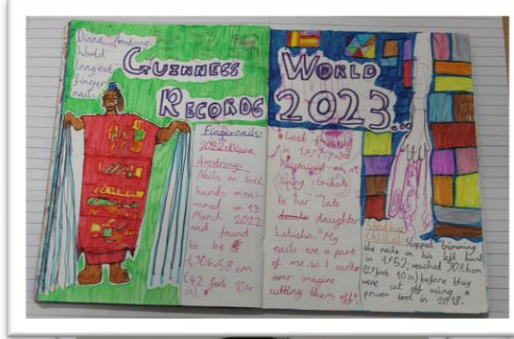 Diana Amstrong:
World
Longest
finger
nails
GUINNESS
RECORDS
WORLD
2023...
Fingernails:
2022-Diana
Amstrong:
Nails on both
hands meas-
ured on 13
March 2022
and found
to be
1,306.58 cm
(42 foot 10¼
in).
Last
in 1997,
as a
tribute
to her late
daughter
Latisha. "My
nails are a part
of me. So I
ever imagine
cutting them off".
Chillal: stopped trimming
the nails on his left hand
in 1952; reached 909.6cm
(29 foot 10 in) before they
were cut off using a
power tool in 2018.